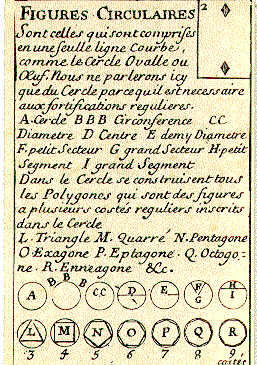 FIGURES CIRCULAIRES
2
Sont celles qui sont comprises
en une seulle ligne Courbe,
comme le Cercle Ovalle ou
Œuf. Nous ne parlerons icy
que du Cercle parce qu'il est necessaire
aux fortifications regulieres.
A. Cercle B B B Circonference CC
Diametre D Centre E demy Diametre
F. petit Secteur G grand Secteur H. petit
Segment I grand Segment.
Dans le Cercle se construisent tous
les Polygones qui sont des figures
a plusieurs costes reguliers inscrits
dans le Cercle
L. Triangle M. Quarré N. Pentagone
O. Exagone P. Eptagone. Q. Octogo-
ne. R. Enneagone &c.
A B B B CC D E F G H I
L M N O P Q R
3 4 5 6 7 8 9
costés